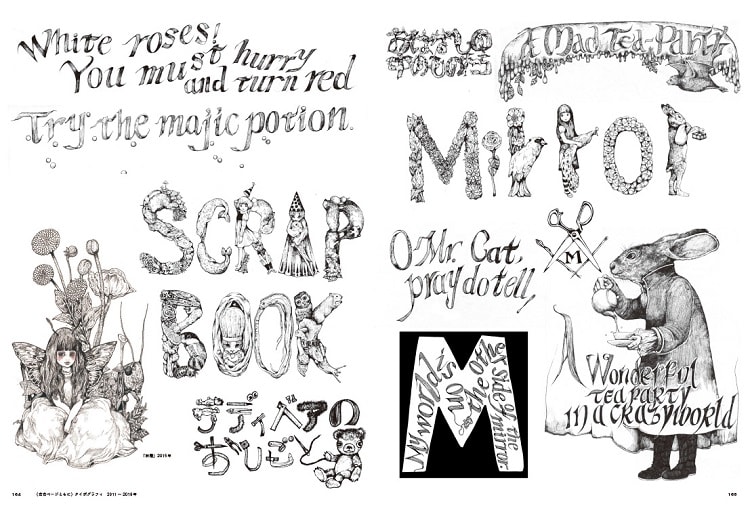 White roses!
You must hurry
and turn red
Try the majic potion.
SCRAP
BOOK
テディベアの
おしごと
2015年
164 タイポグラフィ 2011—2016年
A Mad Tea-Party
Mirror
O Mr. Cat,
pray do tell,
M
M
My world is on the other side of the mirror.
A Wonderful
tea party
in a crazy world
165